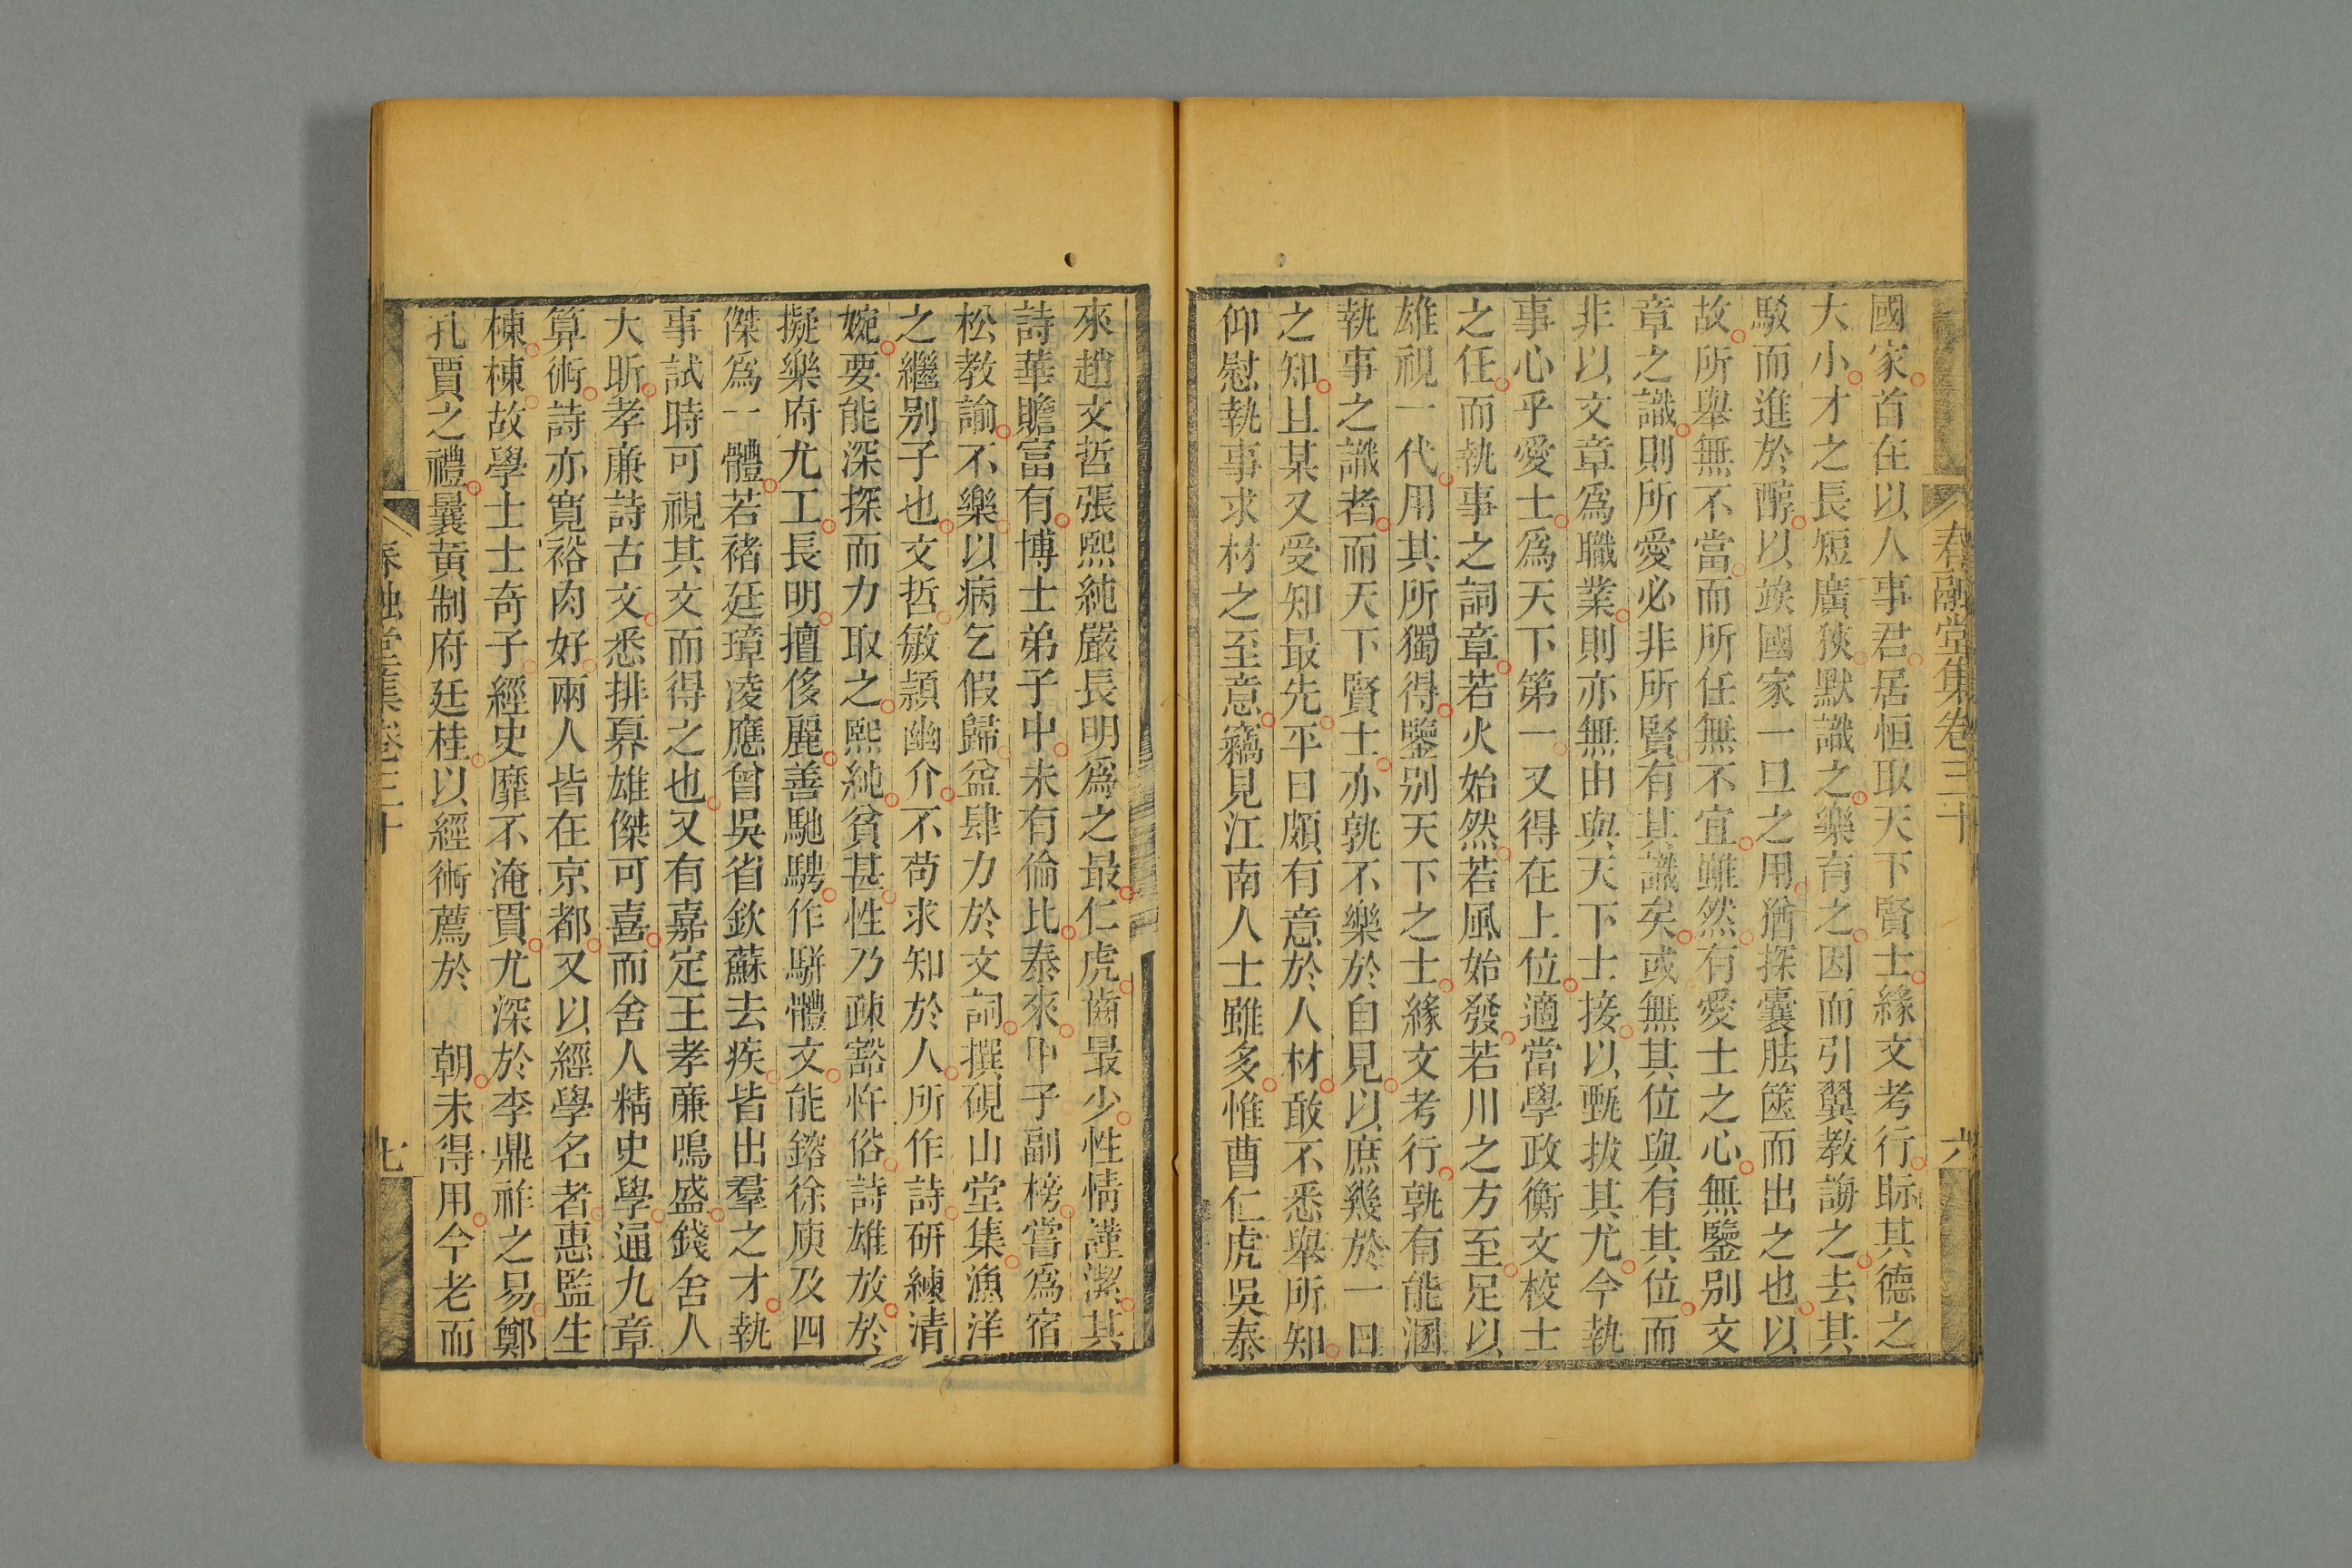 春融堂集卷三十
六
國家首在以人事君居恒取天下賢士緣文考行眎其德之
大小才之長短廣狹默識之樂育之因而引翼教誨之去其
駁而進於醇以竢國家一旦之用猶探囊胠篋而出之也以
故所舉無不當而所任無不宜雖然有愛士之心無鑒别文
章之識則所愛必非所賢有其識矣或無其位與有其位而
非以文章爲職業則亦無由與天下士接以甄拔其尤今執
事心乎愛士爲天下第一又得在上位適當學政衡文校士
之任而執事之詞章若火始然若風始發若川之方至足以
雄視一代用其所獨得鑒别天下之士緣文考行孰有能溷
執事之識者而天下賢士亦孰不樂於自見以庶幾於一日
之知且某又受知最先平日頗有意於人材敢不悉舉所知
仰慰執事求材之至意竊見江南人士雖多惟曹仁虎吳泰
來趙文哲張熙純嚴長明爲之最仁虎齒最少性情謹潔其
詩華贍富有博士弟子中未有倫比泰來甲子副榜嘗爲宿
松教諭不樂以病乞假歸益肆力於文詞撰硯山堂集漁洋
之繼别子也文哲敏頴幽介不苟求知於人所作詩研練清
婉要能深探而力取之熙純貧甚性乃疎豁忤俗詩雄放於
擬樂府尤工長明擅侈麗善馳騁作駢體文能鎔徐庾及四
傑爲一體若褚廷璋凌應曾吳省欽蘇去疾皆出羣之才執
事試時可視其文而得之也又有嘉定王孝亷鳴盛錢舍人
大昕孝亷詩古文悉排奡雄傑可喜而舍人精史學通九章
算術詩亦寬裕肉好兩人皆在京都又以經學名者惠監生
棟棟故學士士奇子經史靡不淹貫尤深於李鼎祚之易鄭
孔賈之禮曩黃制府廷桂以經術薦於　朝未得用今老而
春融堂集卷三十
七